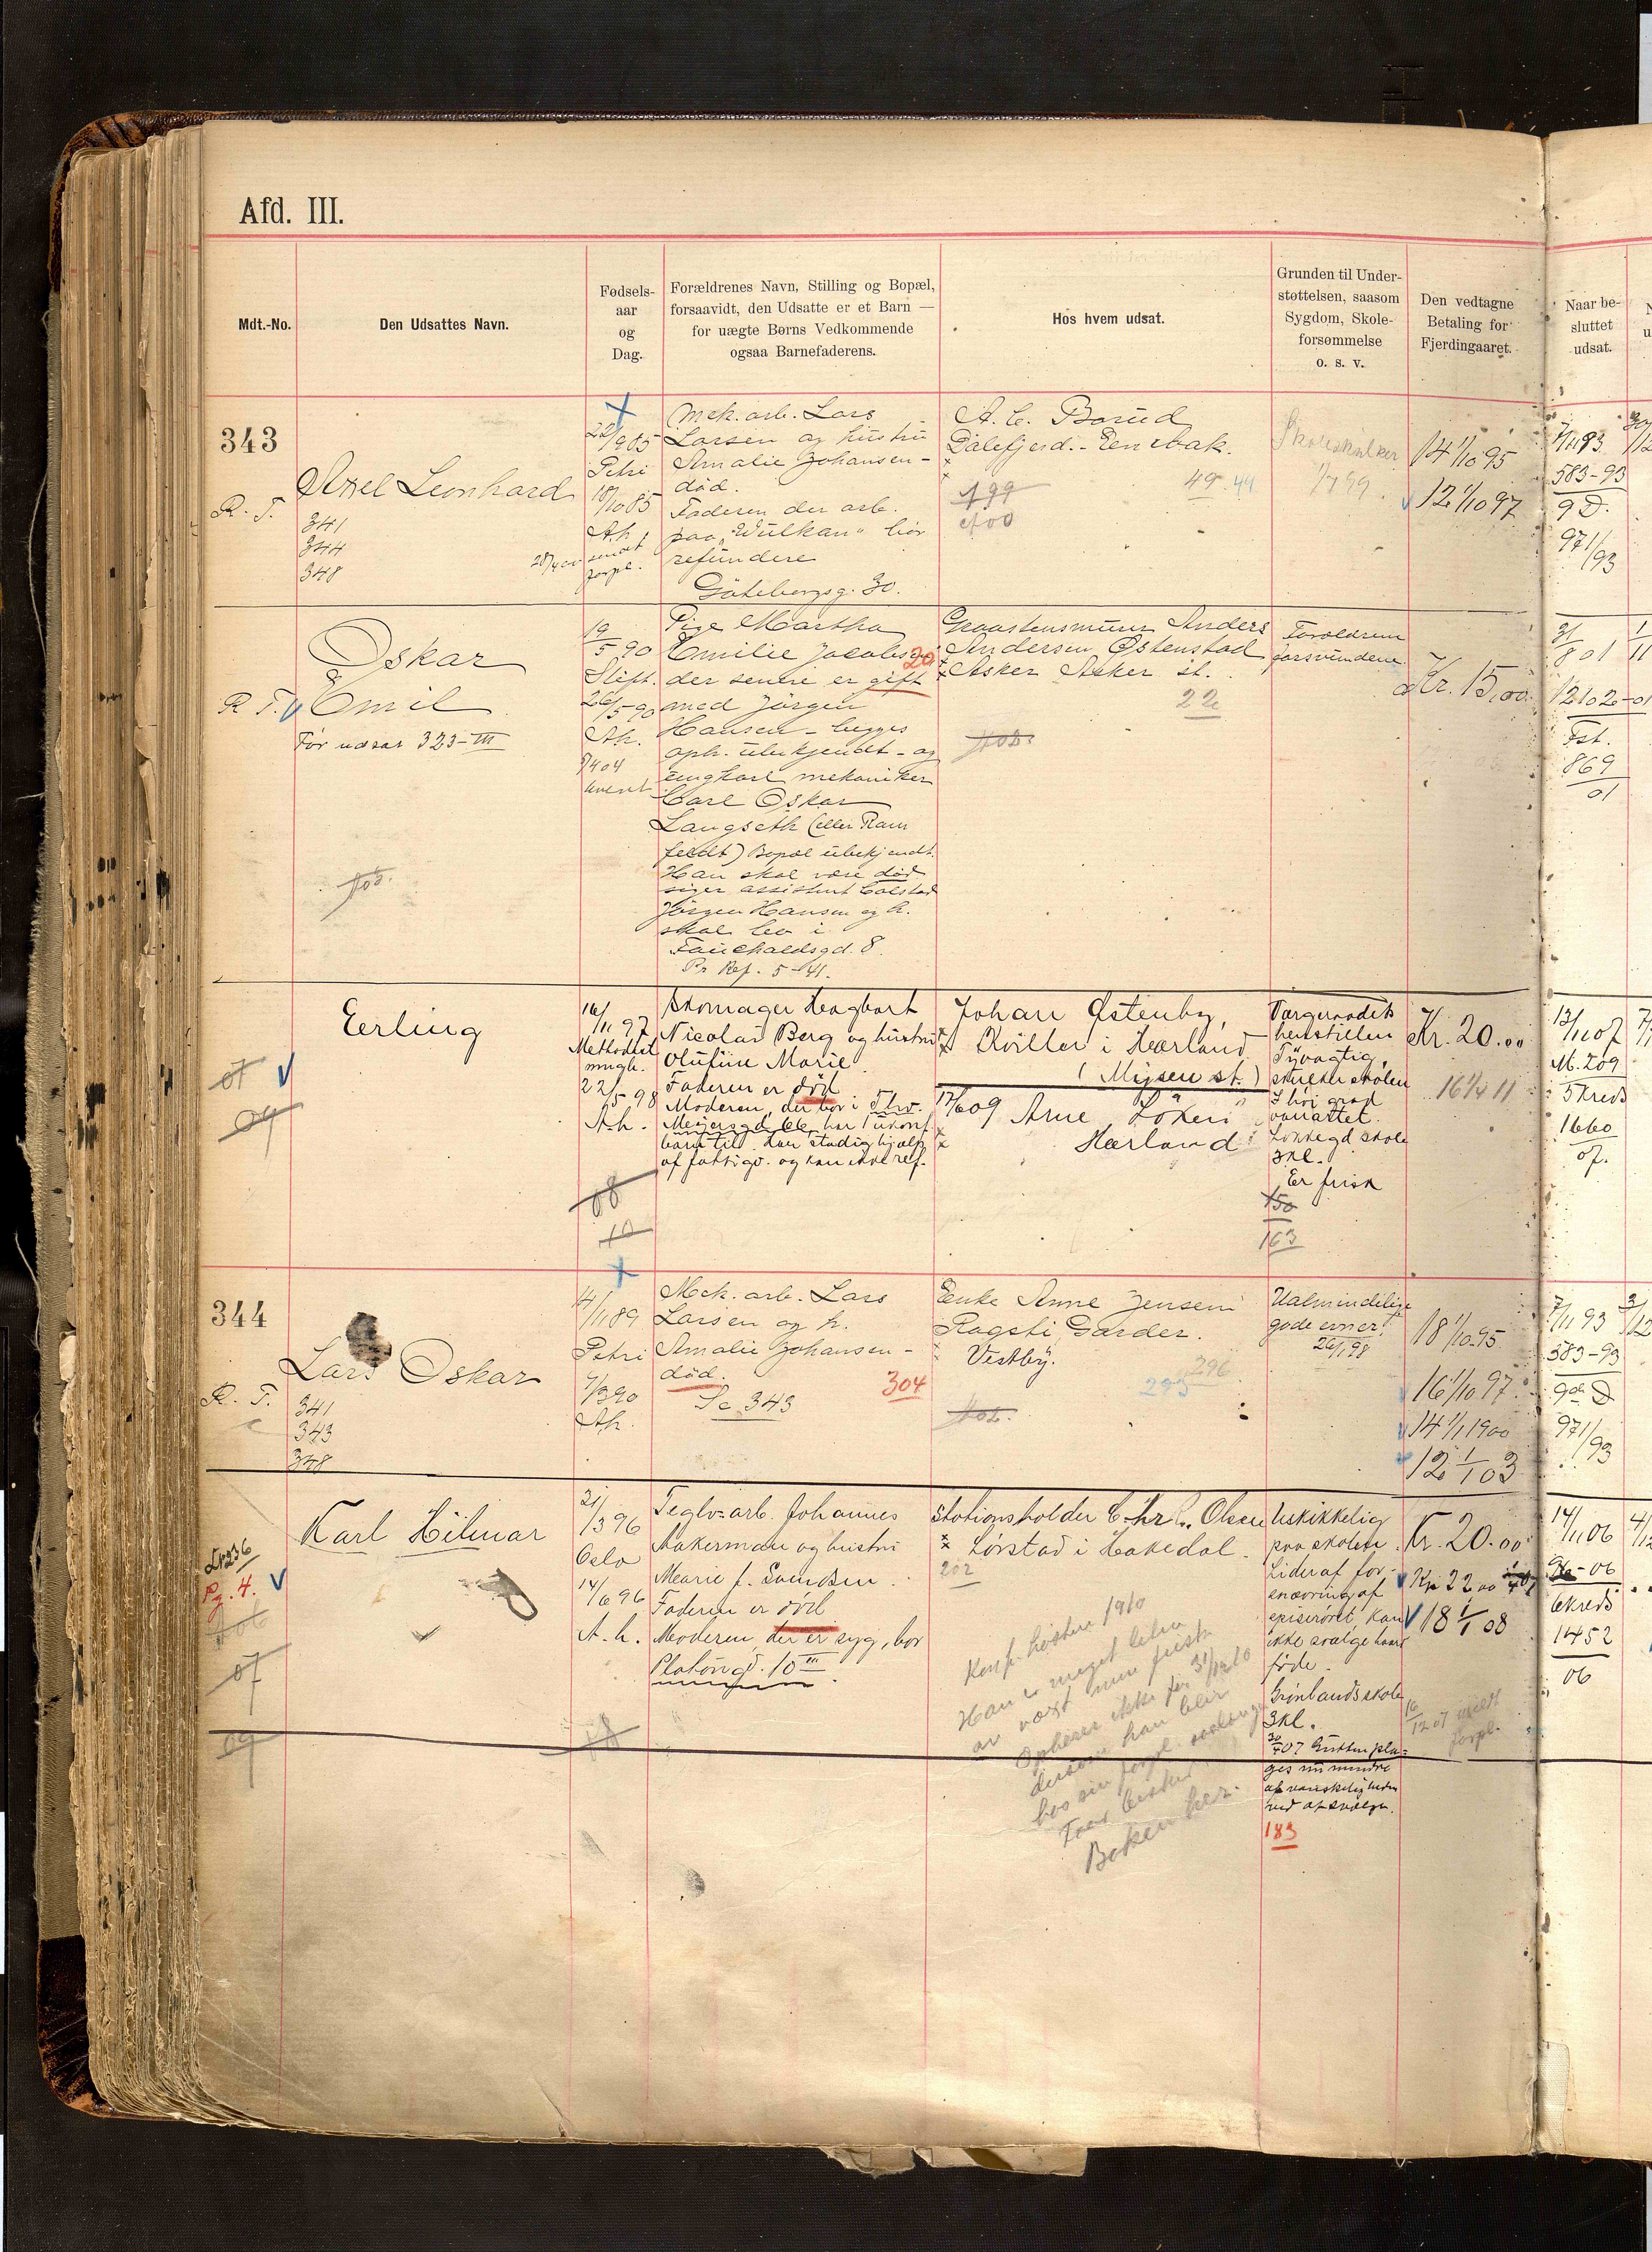 Afd. III.
Mdt.-No.
Den Udsattes Navn.
Fødsels-
aar
og
Dag.
Forældrenes Navn, Stilling og Bopæl,
forsaavidt, den Udsatte er et Barn —
for uægte Børns Vedkommende
ogsaa Barnefaderens.
Hos hvem udsat.
Grunden til Under-
støttelsen, saasom
Sygdom, Skole-
forsømmelse
o. s. v.
Den vedtagne
Betaling for
Fjerdingaaret.
Naar be-
sluttet
udsat.
343
R. T.
Axel Leonhard
341
344
348
22/9 85
Petri
18/10 85
A.h.
Mek. arb. Lars
Larsen og hustru
Amalie Johansen -
død.
Faderen der arb.
paa "Wulkan" bør
refundere
Göteborgsg. 30.
A. C. Borud
Dalefjerd. - Enebak.
49. 44
Skoleskulker
1/7 99.
14 1/10 95
12 1/10 97
7/11 93
583-93
9 D.
971/93
R. T.
Oskar
Emil
Før udsat 323-III
19/5 90
Slift.
26/5 90
A.h.
Pige Martha
Emilie Jacobsen
20
der senere er gift
med Jørgen
Hansen - begges
oph. ubekjendt - og
ungkarl mekaniker
Carl Oskar
Langseth (eller Ram
feldt) Bopæl ubekjendt.
Han skal være død
siger assistent Colstad
Jørgen Hansen og h.
skal bo i
Fauchaldsgd. 8.
Pr. Ref. 5-41.
Graastensmurer Anders
Andersen Østenstad
Asker Asker st.
22
Forældrene
forsvundene.
Kr. 15,00.
12102-01
Fst.
869
01
07
09
Eerling
16/11 97
Methodist
migh.
22/5 98
A.h.
Skomager Hagbart
Nicolai Berg og hustru
Olufine Marie
Faderen er død
Moderen, der bor i Thv.
Meyersgd. 66, har 1 ukonf.
barn til. Har stadig hjælp
af fattigv. og kan ikke ref.
08
10
Johan Østenby,
Kviller i Hærland
(Mysen st.)
17/6 09 Arne Løken
Hærland
Vergeraadets
henstillen
Tyvagtig,
skulker skolen
I høi grad
vanartet.
Lakkegd skole
3 kl.
Er frisk
150
163
Kr. 20.00
16 1/4 11
13/11 07
M. 209
5 Kreds
1660
07.
344
R. T.
Lars Oskar
341
343
348
4/11 89
Petri
A.h.
Mek. arb. Lars
Larsen og h.
Amalie Johansen -
død.
Se 343
304
Enke Anne Jensen
Ragsti, Garder.
Vestby.
296
295
Ualmindelige
gode evner!
18 1/10 95
16 1/10 97
14 1/1 1900
12 1/1 03
7/11 93
583-93
9de D
971/93
Pg. 4.
06
07
09
Karl Hilmar
21/3 96
Oslo
14/6 96
A.h.
Teglv.arb. Johannes
Aakerman og hustru
Marie f. Svendsen
Faderen er død
Moderen, der er syg, bor
Platøugd. 10 III
Stationsholder Chr. C. Olsen
Lørstad i Hakedal.
202
Konf. høsten 1910
Han er meget liten
av vext men frisk
Ophører ikke før 31/12 10
dersom han blir
hos sin forpl. saalænge
Faar
Bøker her.
Uskikkelig
paa skolen.
Lider af for-
snævring af
spiserøret. Kan
ikke svælge haard
føde.
Grønlandsskole
3 kl.
30/4 07 Gutten pla-
ges nu mindre
af vanskeligheden
ved at svælge.
183
Kr. 20.00
Kr. 22.00
18 1/1 08
14/11 06
6 kreds
1452
06